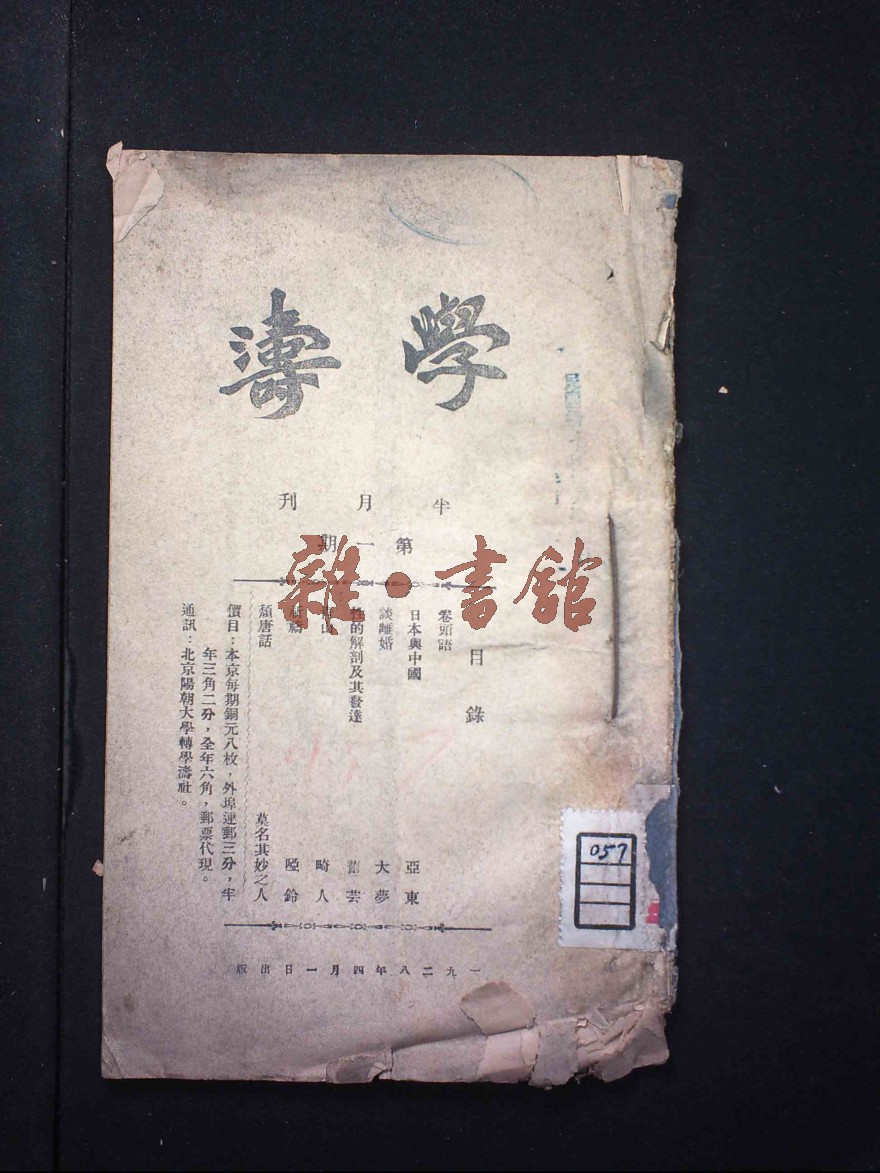 學濤
半月刊
第一期
目錄
卷頭語
日本與中國 亞東
談離婚 大夢
性的解剖及其發達 芸
畸人
啞鈴
頹唐話 莫名其妙之人
價目：本京每期銅元八枚，外埠連郵三分，半
年三角二分，全年六角，郵票代現。
通訊：北京陽朝大學轉學濤社。
一九二八年四月一日出版
雜·書館
057